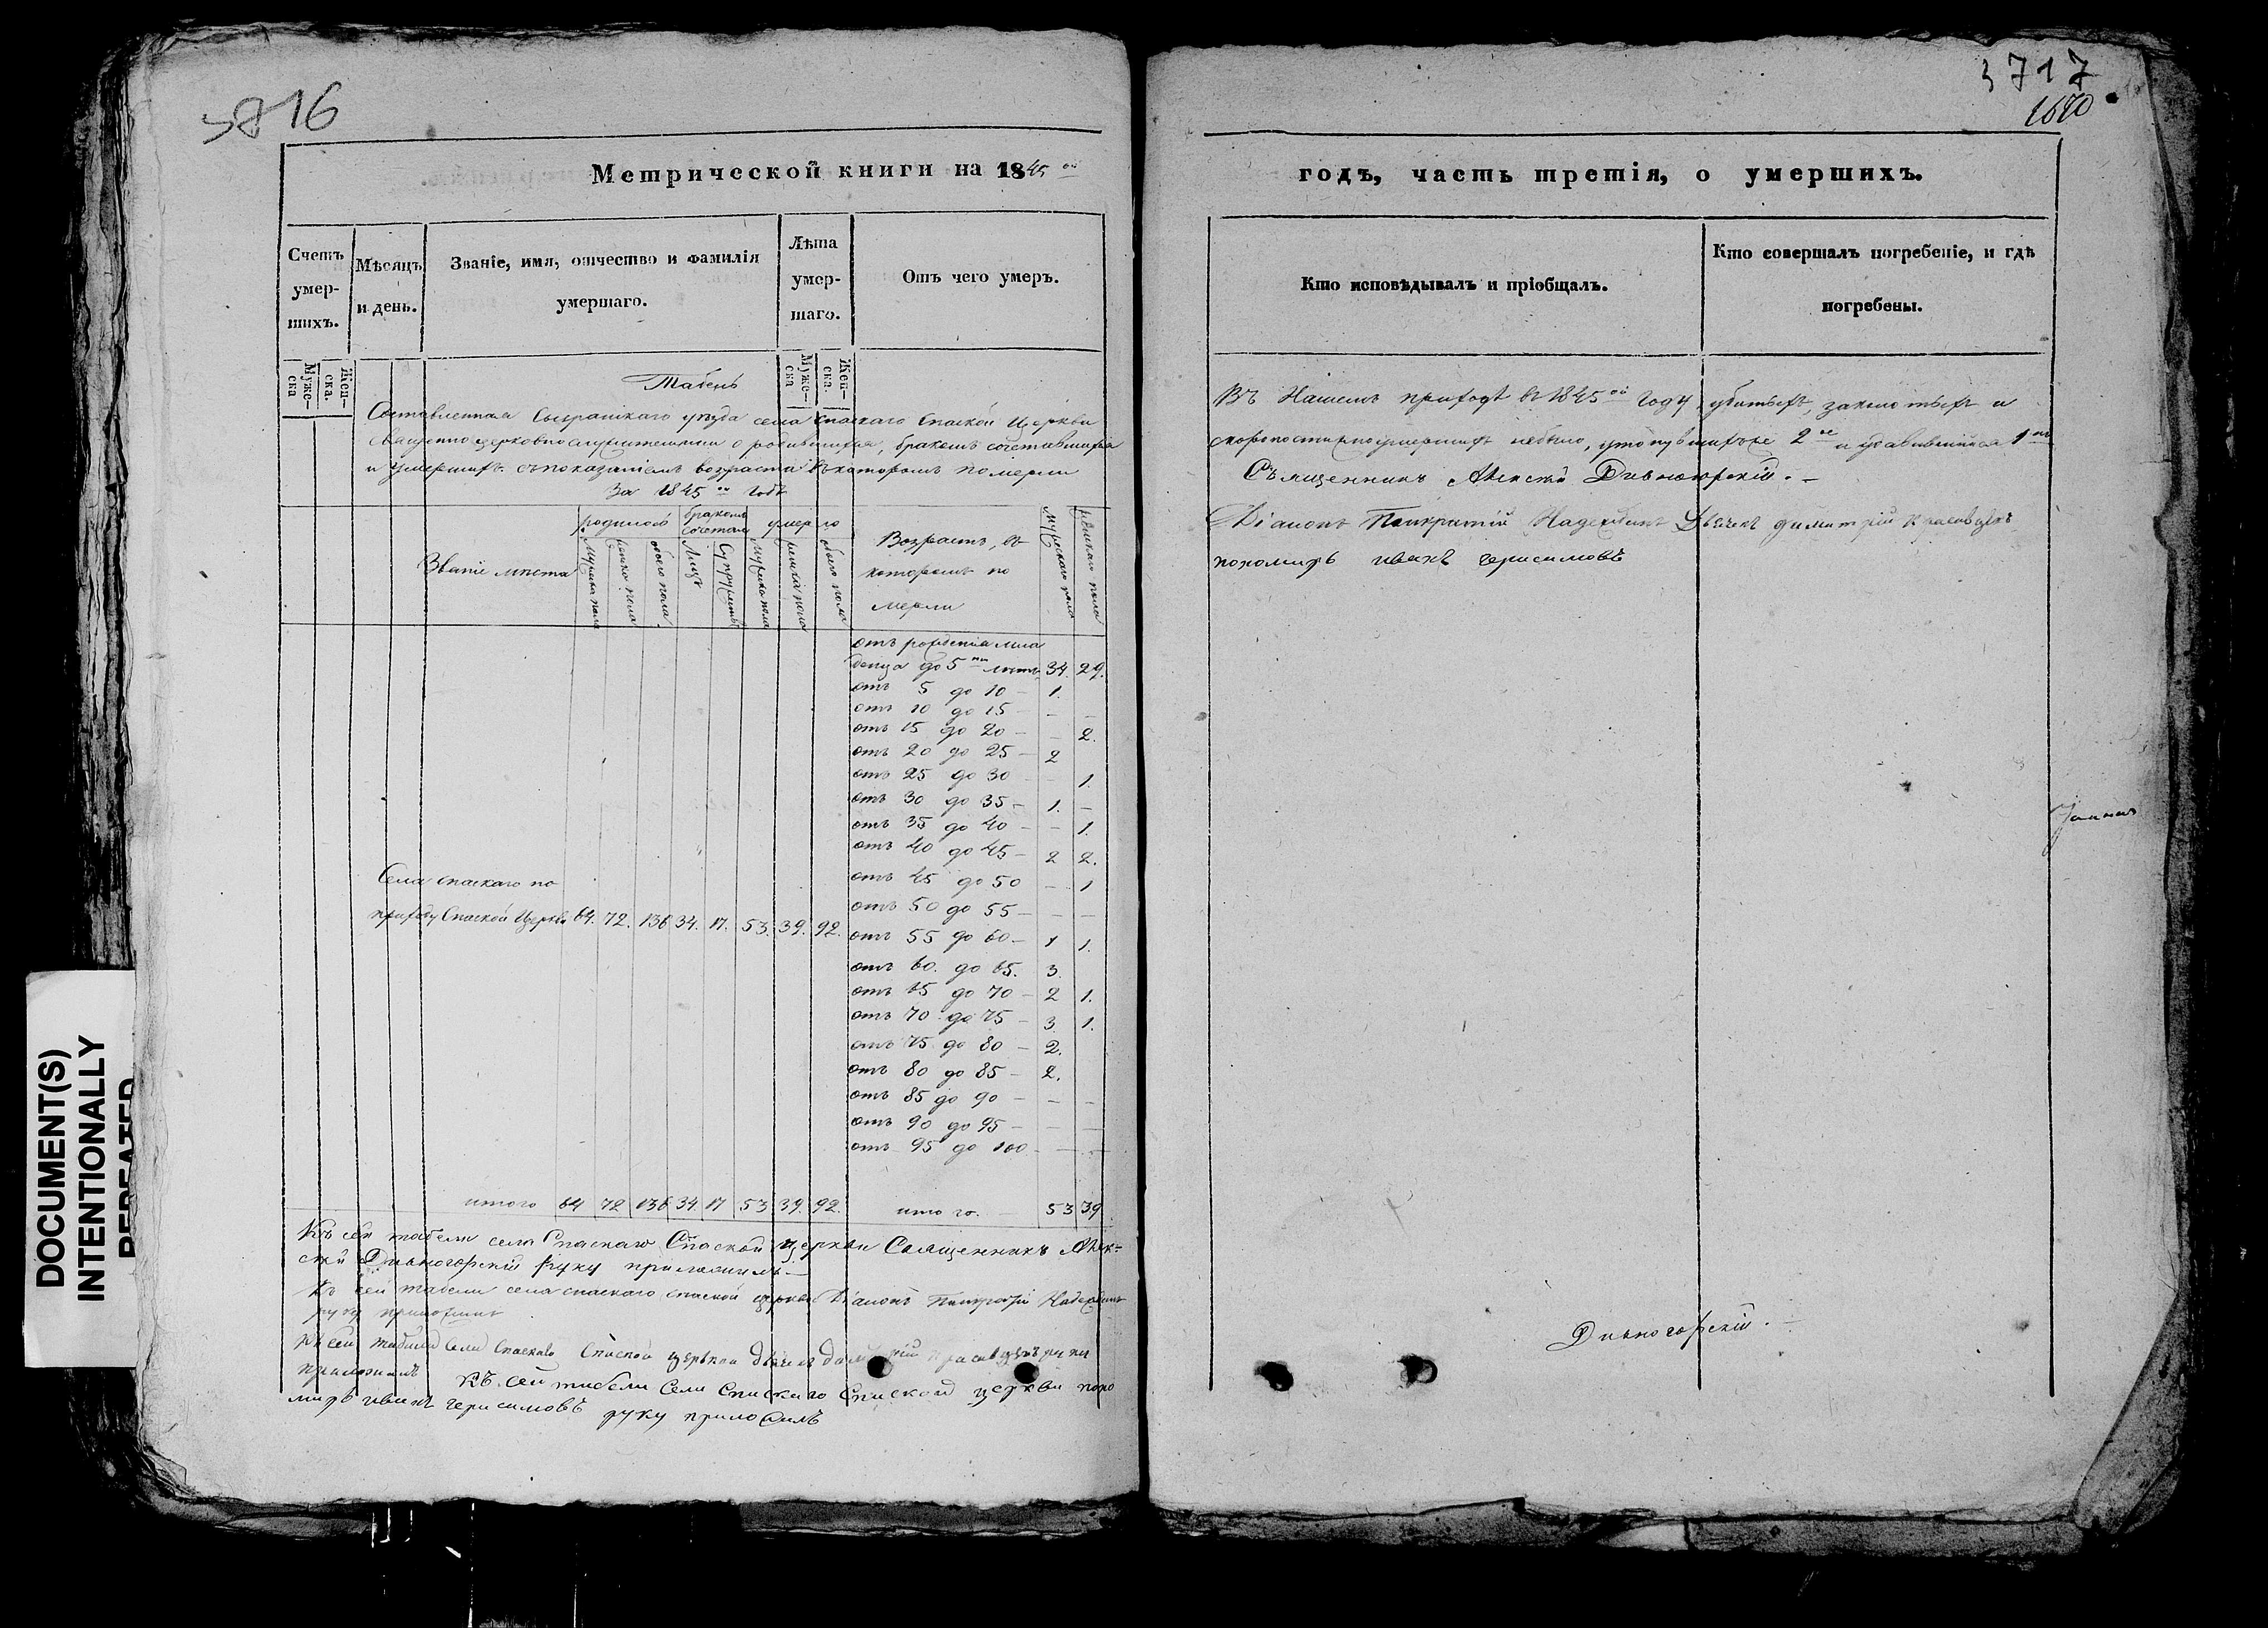 3816
Метрической книги на 1845 ой
Счетъ умер-шихъ.
Мѣсяцъ и день.
Званіе, имя, отчество и фамилія умершаго.
Лѣта умер-шаго.
Отъ чего умеръ.
Муже-ска
Жен-ска.
Муже-ска
Жен-ска.
Табель
Составленная Сызранскаго уезда села Спаскаго Спаской Церкви
священно церковно служителями о родившихся, бракомъ сочетавшихся
и умершихъ съ показаніемъ возраста въ которомъ померли
За 1845 ой Годъ
Званіе места
родилось
бракомъ сочетано
умерло
мужска пола
женска пола
обоего пола
Лицъ
Супружествъ
мужска пола
женска пола
обоего пола
Возрастъ, въ которомъ по мерли
мужескаго пола
женскаго пола
отъ рожденія мла
денца до 5 ти летъ 34. 29.
отъ 5 до 10 – 1.
отъ 10 до 15 – – –
отъ 15 до 20 – – 2.
отъ 20 до 25 – 2
отъ 25 до 30 – – 1.
отъ 30 до 35 – 1. –
отъ 35 до 40 – – 1.
отъ 40 до 45 – 2 2.
отъ 45 до 50 – 1
отъ 50 до 55 – – –
отъ 55 до 60 – 1 1.
отъ 60. до 65. 3.
отъ 65 до 70 – 2 1.
отъ 70 до 75 – 3 1.
отъ 75 до 80 – 2.
отъ 80 до 85 – 2.
отъ 85 до 90 – – –
отъ 90 до 95 – – –
отъ 95 до 100 – – –
Села спаскаго по
приходу Спаской Церкви 64. 72. 136 34. 17. 53. 39. 92.
итого 64 72 136 34. 17 53 39. 92.
итого. 53 39
Къ сей табели села Спаскаго Спаской церкви Священникъ Алек-
сѣй Дивногорскій руку приложилъ –
Къ сей табели села спаскаго спаской церкви Діаконъ Панкратій Надеждинъ
руку приложилъ
Къ сей табели села Спаскаго Спаской церкви Дьячек
приложилъ
Къ сей табели Села Спаскаго Спаской церкви поно
марь иванъ герасимовъ руку приложилъ
3717
1670
годъ, часть третія, о умершихъ.
Кто исповѣдывалъ и пріобщалъ.
Кто совершалъ погребеніе, и гдѣ погребены.
Въ Нашемъ приходѣ въ 1845 ой Году, убитыхъ, и
скоропостижно умершихъ небыло, утонувшихъ 2 ое и удавившійся 1 нъ
Священникъ Алексѣй Дивногорскій. –
Діаконъ Панкратій Надеждинъ Дьячек димитрій
пономарь иванъ герасимовъ
Дивногорскій. –
DOCUMENT(S)
INTENTIONALLY
REPEATED